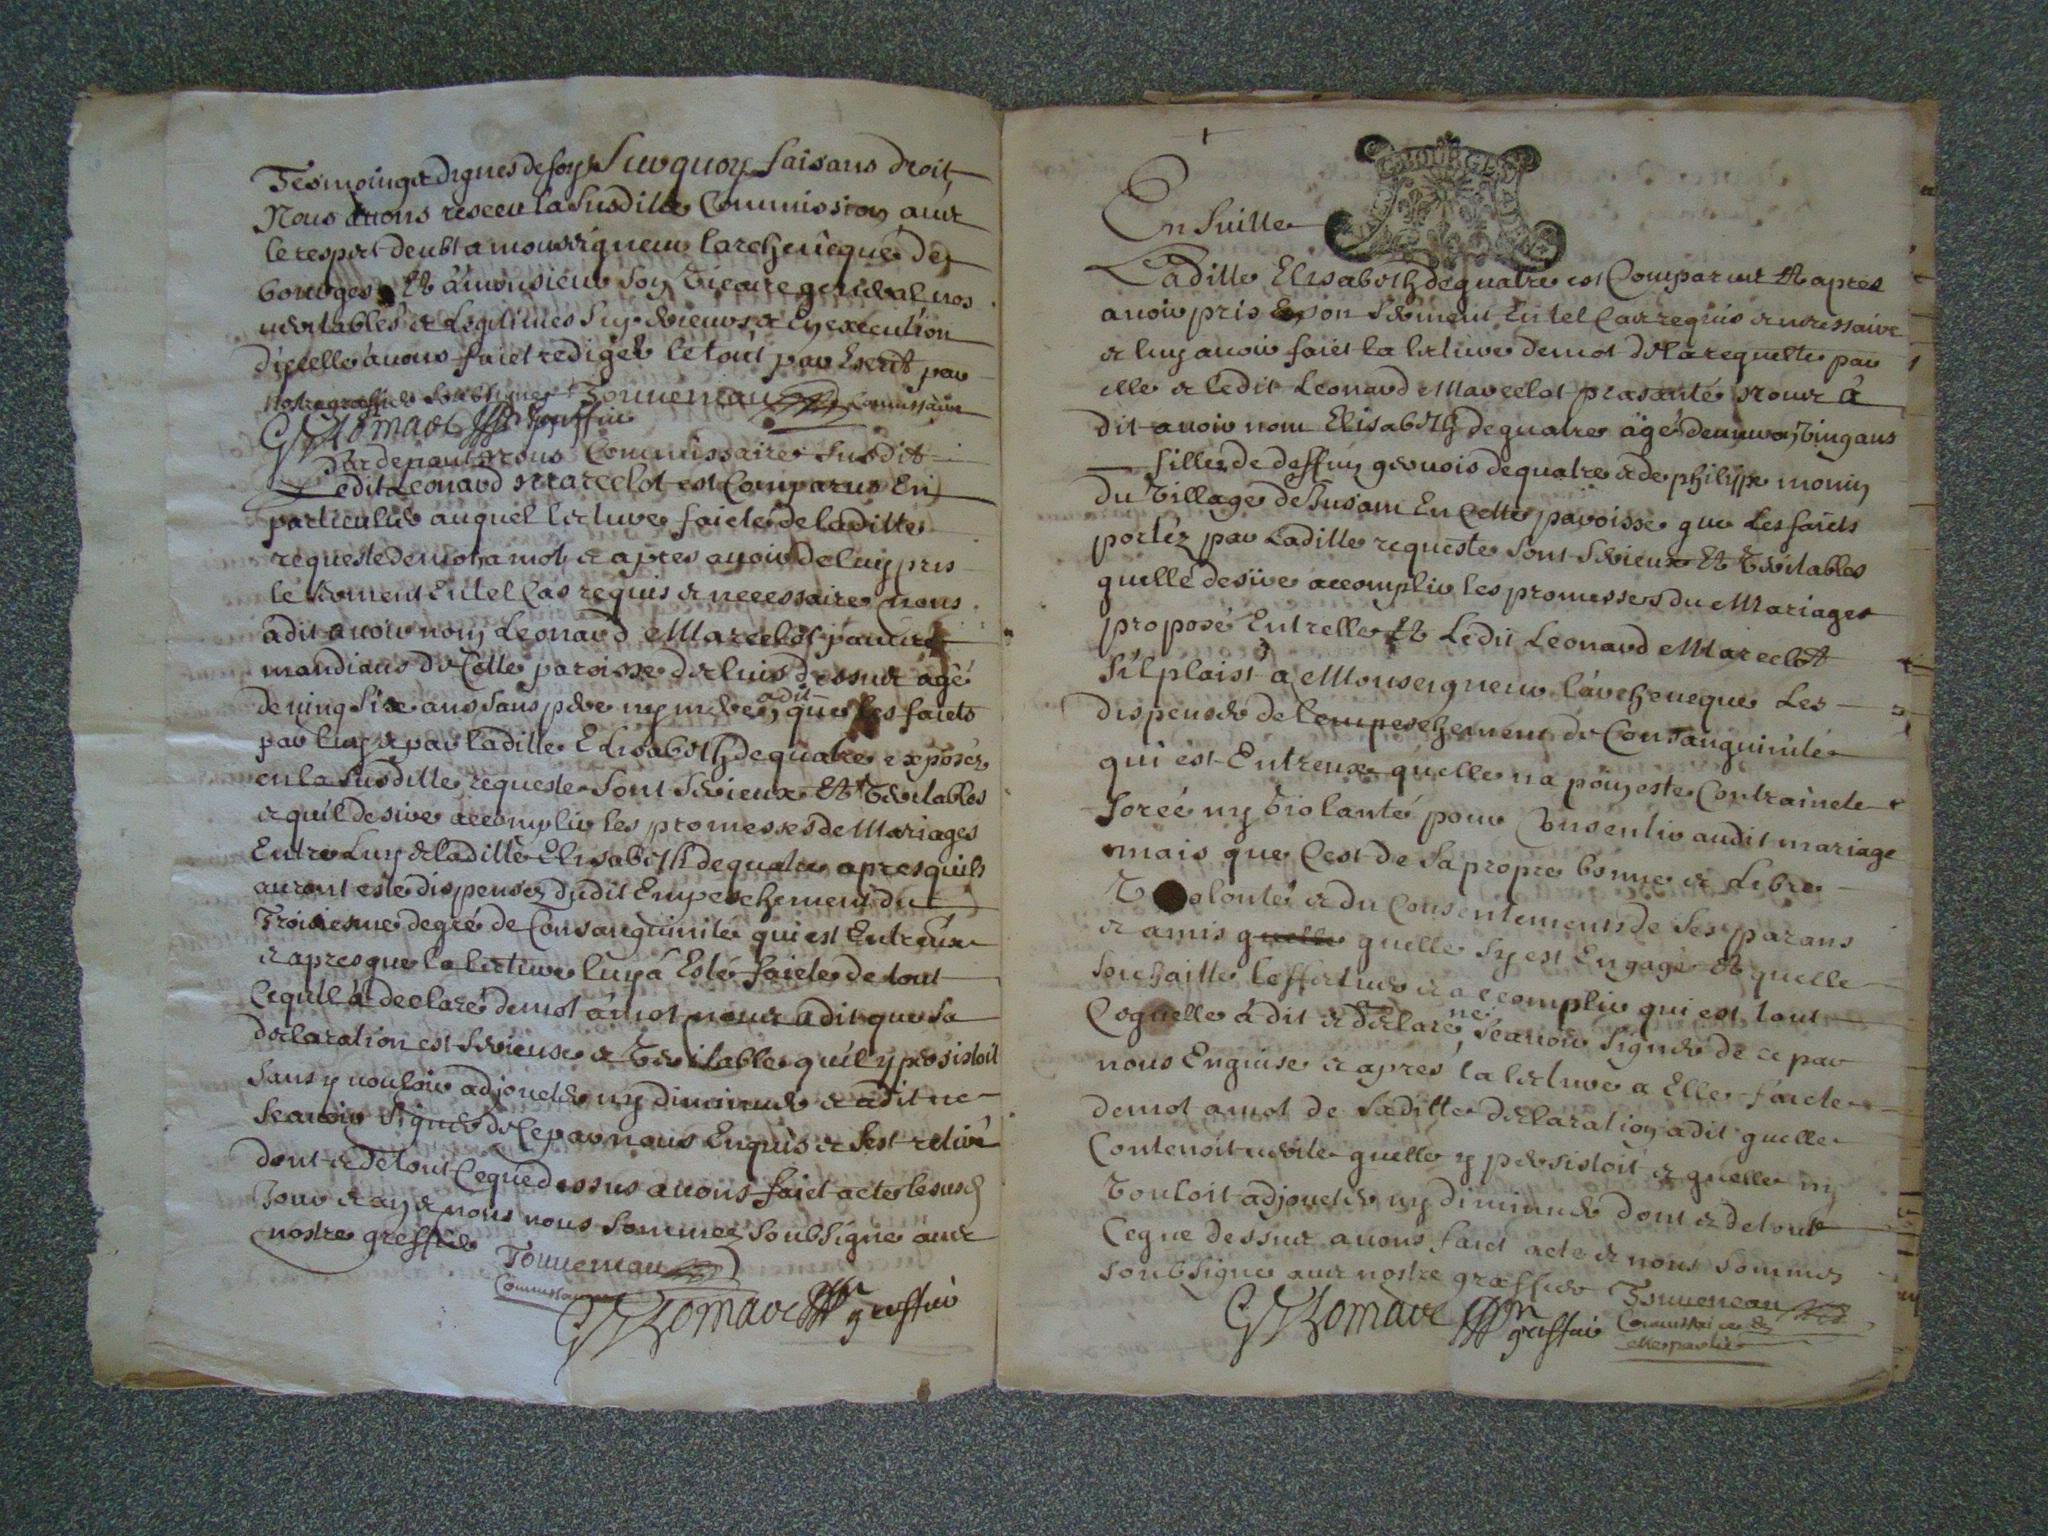 Tesmoings dignes de foy Sur quoy faisans droit
Nous avons receu la susditte Commission avec
le respect deubt a monseigneur larchevecque de
bourges Et a monsieur son vicaire general nos
veritables et Legitimes Superieurs et En execution
dicelle avons faict rediger le tout par Escrit par
nostre greffier soubsigné Touuereau Commissaire
G Romave greffier
Pardevant nous Commissaire susdit
Ledit Leonard Marcelot est Comparus En
particulier auquel lecture faicte de laditte
requeste de mot a mot et apres avoir de luy pris
le serment En tel Cas requis et necessaire nous
a dit avoir nom Leonard Marcelot pauvre
mandians de Cette paroisse de luis dessus agé
de ving Six ans sans pere ny mere, adit que les faicts
par luy et par laditte Elisabeth dequatre exposez
en la susditte requeste sont serieux Et veritables
et quil desire accomplir les promesses de Mariages
Entre Luy et laditte Elisabeth dequatre apres quils
auront esté dispensez dudit Empeschement du
Troisiesme degré de Consanguinité qui est Entreux
et apres que la lecture luy a Esté faicte de tout
Cequil a declaré de mot a mot nous a dit que sa
declaration est serieuse et veritable quil y persistoit
sans y vouloir adjouter ny diminuer et a dit ne
scavoir signer de Ce par nous Enquis et sest retiré
dont et de tout Ceque dessus avons faict acte lesusd
Jour et an et nous nous sommes soubsigné avec
nostre greffier Touuereau
Commissaire
G Romave greffier
BOURGES
En suitte
Laditte Elisabeth dequatre est Comparue Et apres
avoir pris son serment En tel Cas requis et necessaire
et luy avoir faict la lecture de mot de la requette par
elle et ledit Leonard Marcelot presanté nous a
dit avoir nom Elisabeth dequatre agé denviron ving ans
fille de deffun genvois dequatre et de philippe monin
du village de Susam En Cette paroisse que les faicts
portéz par Laditte requeste sont serieux Et veritables
quelle desire accomplir les promesses du Mariages
proposé Entrelle Et Ledit Leonard Marcelot
sil plaist a Monseigneur larchevecque Les
dispenser de lempeschement de Consanguinité
qui est Entreux quelle na poin esté Contraincte
forcé ny violanté pour Consentir audit mariage
mais que Cest de sa propre bonne et Libre
volonté et du Consentement de ses parans
et amis quelle quelle sy est Engagé Et quelle
souhaitte leffectuer et accomplir qui est tout
Cequelle a dit et declare, ne scavoir signer de ce par
nous Enquise et apres la lecture a Elle faicte
de mot a mot de saditte declaration a dit quelle
Contenoit verité quelle y persistoit et quelle ny
vouloit adjouter ny diminuer dont et de tout
Ceque dessus avons faict acte et nous sommes
soubsigné avec nostre greffier Touuereau
G Romave greffier Commissaire en
cette partie